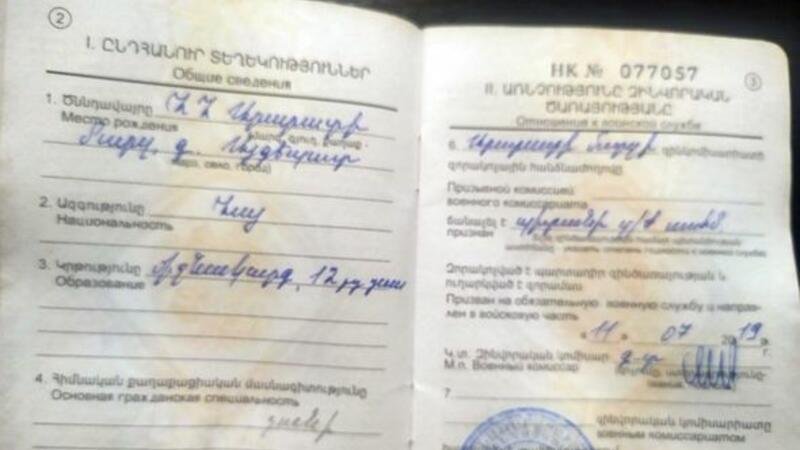 2
I. ԸՆԴՀԱՆՈՒՐ ՏԵՂԵԿՈՒԹՅՈՒՆՆԵՐ
Общие сведения
1. Ծննդավայրը ՀՀ Արարատի
Место рождения
մարզ, գ. Այգեզարդ
2. Ազգությունը Հայ
Национальность
3. Կրթությունը միջնակարգ, 12
Образование
4. Հիմնական քաղաքացիական մասնագիտությունը
Основная гражданская специальность
չունի
НК № 077057
3
II. ԱՌՆՉՈՒԹՅՈՒՆԸ ԶԻՆՎՈՐԱԿԱՆ
ԾԱՌԱՅՈՒԹՅԱՆԸ
Отношение к воинской службе
6. Արարատի մարզի զինկոմիսարիատի
զորակոչային հանձնաժողովը
Призывной комиссией
военного комиссариата
ճանաչել է պիտանի
признан
Զորակոչված է պարտադիր զինծառայության և
ուղարկված է զորամաս
Призван на обязательную военную службу и направ-
лен в войсковую часть
« 11 » 07 2019 թ.
г.
Կ.տ. Զինվորական կոմիսար
М.п. Военный комиссар
7
զինվորական կոմիսարիատը
военным комиссариатом